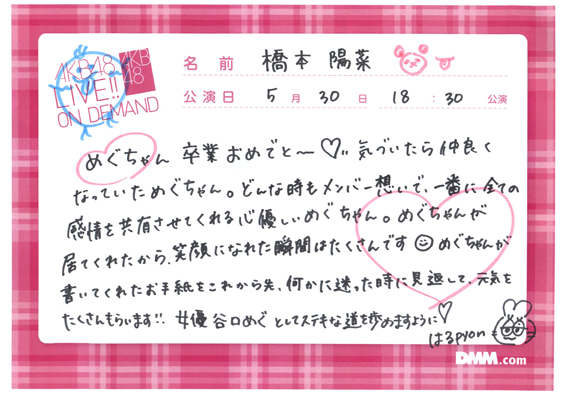 AKB48
LIVE!!
ON DEMAND
AKB
48
名前 橋本 陽菜
公演日 5月30日 18:30 公演
めぐちゃん 卒業おめでと〜♡!! 気づいたら仲良く
なっていためぐちゃん。どんな時もメンバー想いで、一番に全ての
感情を共有させてくれる心優しいめぐちゃん。めぐちゃんが
居てくれたから、笑顔になれた瞬間はたくさんです☺ めぐちゃんが
書いてくれたお手紙をこれから先、何かに迷った時に見返して、元気を
たくさんもらいます!! 女優 谷口めぐ としてステキな道を歩めますように♡
はるpyon
DMM.com